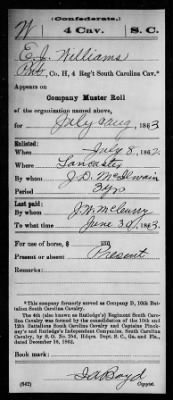 (Confederate.)
W 4 Cav. S. C.
E. J. Williams
Pvt, Co. H, 4 Reg't South Carolina Cav.*
Appears on
Company Muster Roll
of the organization named above,
for July & Aug, 1863
Enlisted:
When July 8, 1862
Where Lancaster
By whom J. D. McIlwain
Period 3 yrs
Last paid:
By whom J. W. McCurry
To what time June 30, 1863.
For use of horse, $
Present or absent Present
Remarks:
*This company formerly served as Company D, 10th Battalion South Carolina Cavalry.
The 4th (also known as Rutledge's) Regiment South Carolina Cavalry was formed by the consolidation of the 10th and 12th Battalions South Carolina Cavalry and Captains Pinckney's and Rutledge's Independent Companies, South Carolina Cavalry, by S. O. No. 254, Hdqrs. Dept. S. C., Ga. and Fla., dated December 16, 1862.
Book mark:
(642) Boyd
Copyist.